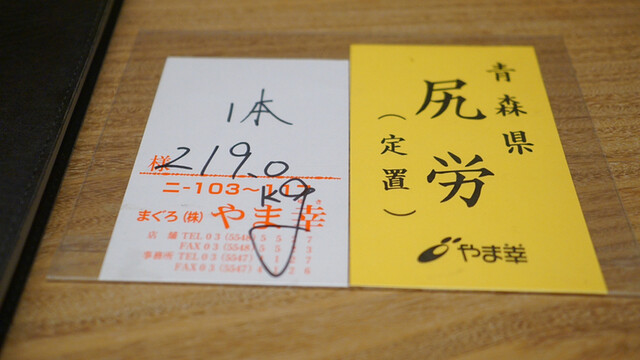 1本
219.0
kg
様
ニ-103~117
まぐろ(株)やま幸
店舗 TEL03(5548)
FAX03(5548)
事務所 TEL03(5547)
FAX03(5547)
青森県
尻労
(定置)
やま幸